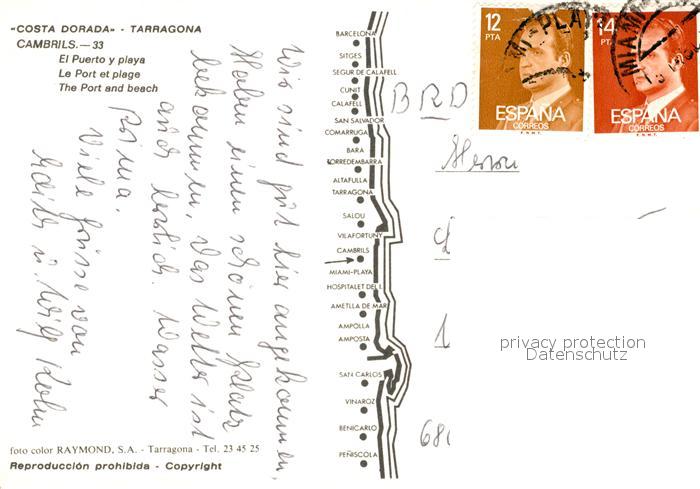 «COSTA DORADA» - TARRAGONA
CAMBRILS.—33
El Puerto y playa
Le Port et plage
The Port and beach
Wir sind gut hier angekommen,
Haben einen schönen Platz
bekommen, das Wetter ist
auch herrlich. Wasser
prima.
Viele Grüsse von
u. Willy
foto color RAYMOND, S.A. - Tarragona - Tel. 23 45 25
Reproducción prohibida - Copyright
BARCELONA
SITGES
SEGUR DE CALAFELL
CUNIT
CALAFELL
SAN SALVADOR
COMARRUGA
BARA
TORREDEMBARRA
ALTAFULLA
TARRAGONA
SALOU
VILAFORTUNY
CAMBRILS
MIAMI-PLAYA
HOSPITALET DEL I.
AMETLLA DE MAR
AMPOLLA
AMPOSTA
SAN CARLOS
VINAROZ
BENICARLO
PEÑISCOLA
12
PTA
ESPAÑA
CORREOS
F.N.M.T.
14
ESPAÑA
CORREOS
F.N.M.T.
MIAMI-PLAYA
MIAMI
BRD
Herrn
68
privacy protection
Datenschutz